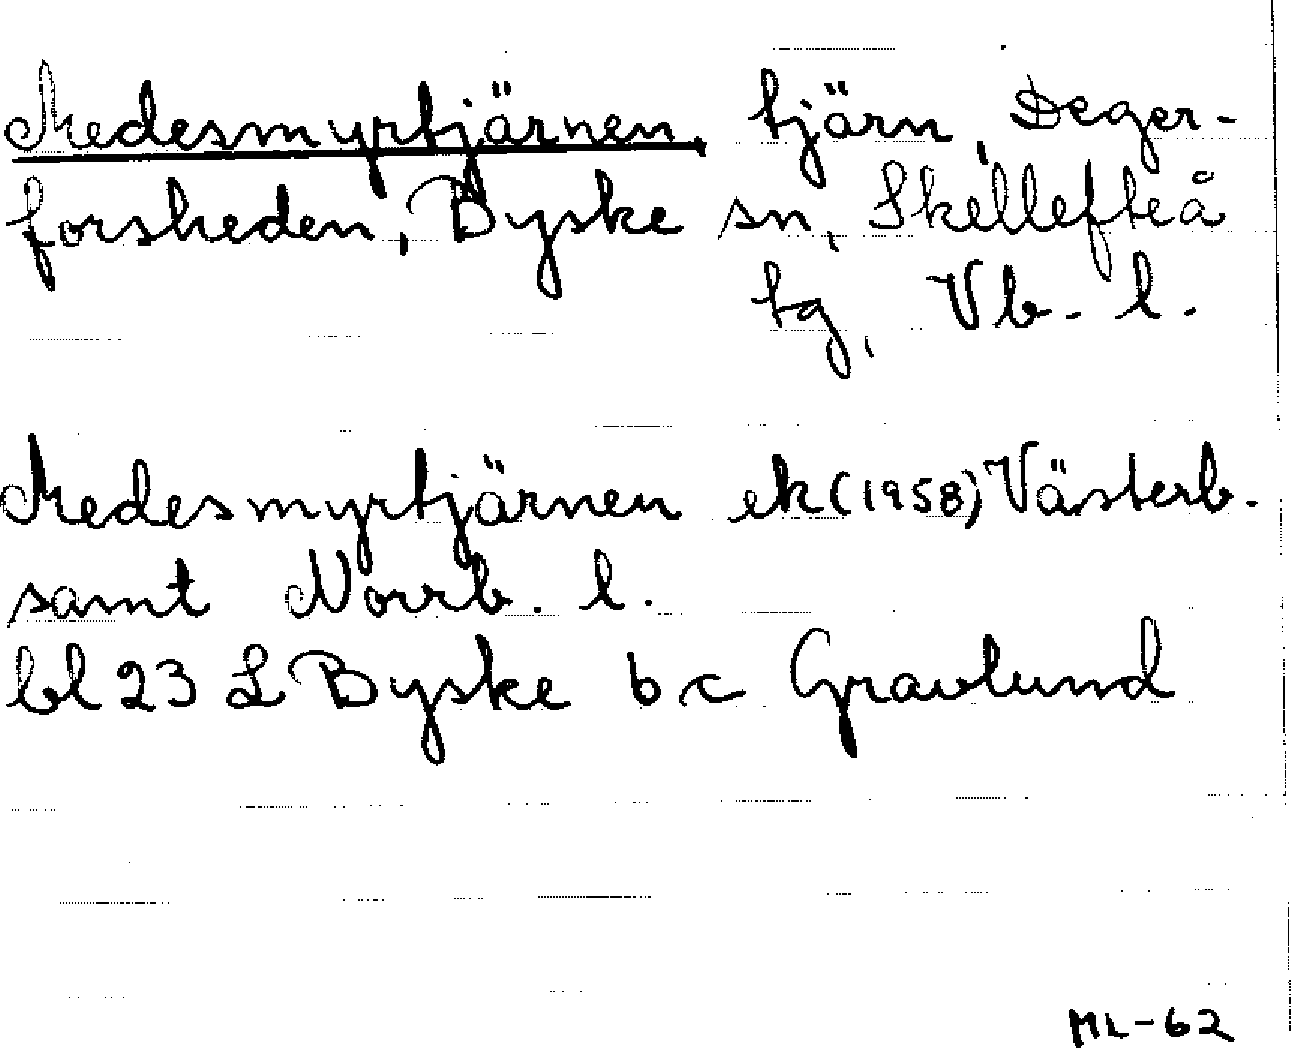 Medesmyrtjärnen, tjärn, Deger-
forsheden, Byske sn, Skellefteå
tg, Vb. l.
Medesmyrtjärnen ek (1958) Västerb.
samt Norrb. l.
bl 23 L Byske b c Gravlund
ML-62